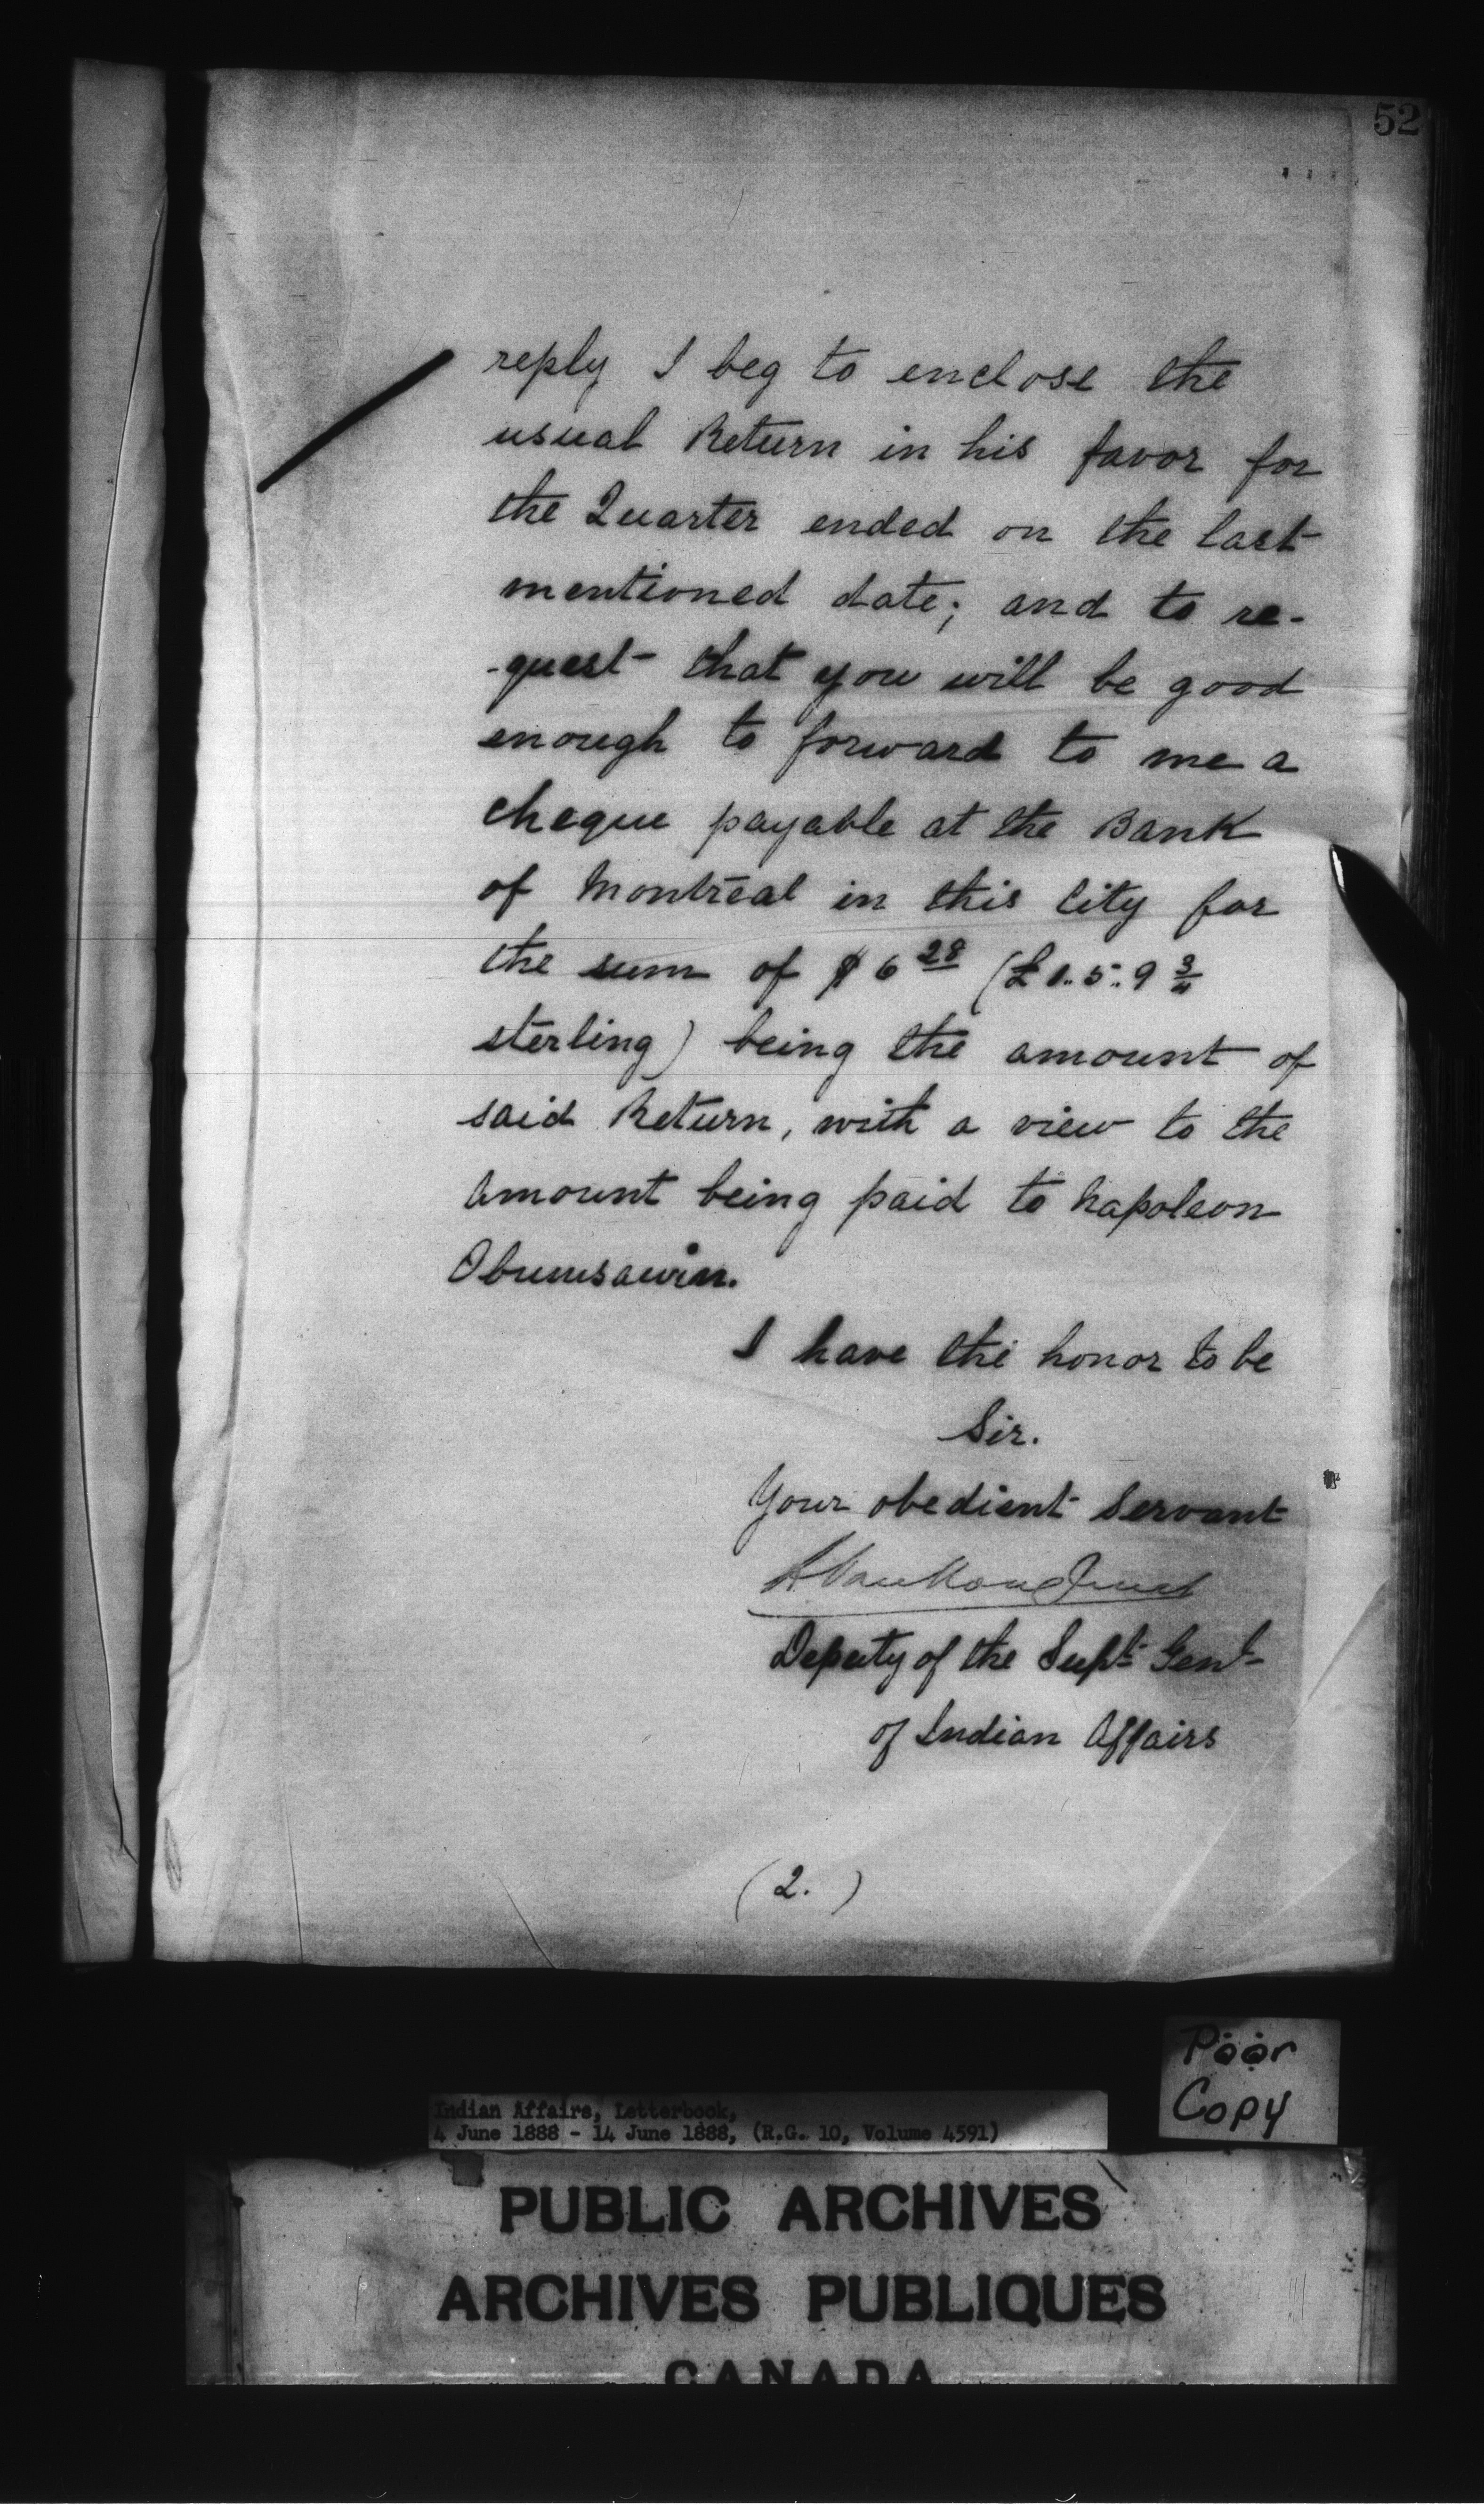 52
reply I beg to enclose the
usual Return in his favor for
the Quarter ended on the last
mentioned date; and to re-
-quest that you will be good
enough to forward to me a
cheque payable at the Bank
of Montreal in this City for
the sum of $6 28 (£1..5..9 3/4
sterling) being the amount of
said Return, with a view to the
amount being paid to Napoleon
Obumsawin.
I have the honor to be
Sir.
Your obedient Servant
L. VanKoughnet
Deputy of the Supt. Genl.
of Indian Affairs
(2.)
Poor
Copy
Indian Affairs, Letterbook,
4 June 1888 - 14 June 1888, (R.G. 10, Volume 4591)
PUBLIC ARCHIVES
ARCHIVES PUBLIQUES
CANADA